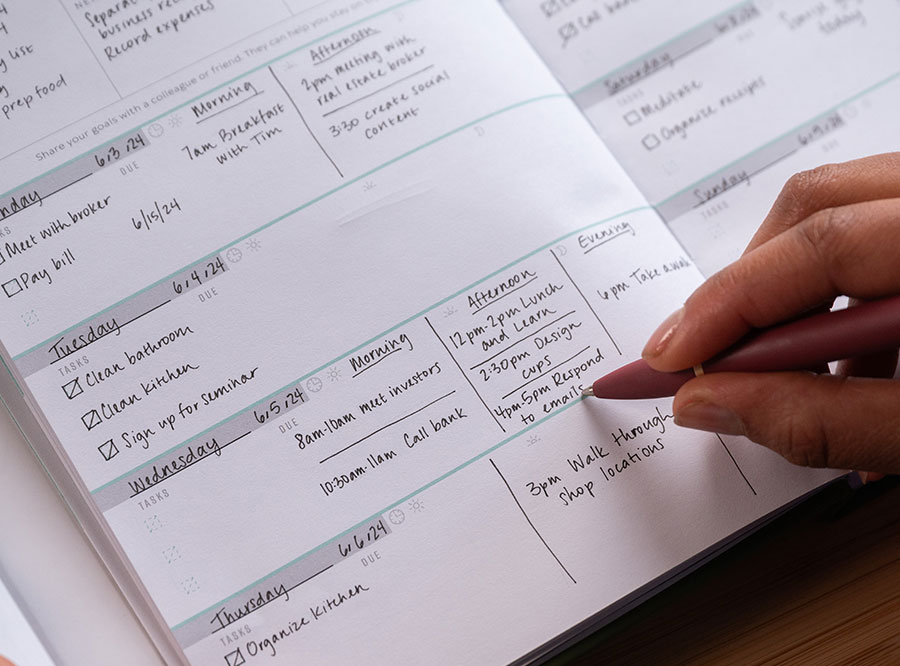 Separat
business re
Record expenses
y list
prep food
Share your goals with a colleague or friend. They can help you stay on
nday 6/3/24
DUE
Meet with broker
Pay bill 6/15/24
Morning
7am Breakfast
with Tim
Afternoon
2pm meeting with
real estate broker
3:30 create social
content
Tuesday 6/4/24
TASKS
DUE
Clean bathroom
Clean kitchen
Sign up for seminar
Wednesday 6/5/24
TASKS
DUE
Morning
8am-10am meet investors
10:30am-11am Call bank
Afternoon
12pm-2pm Lunch
and Learn
2:30pm Design
cups
4pm-5pm Respond
to emails
Evening
6pm Take awa
Thursday 6/6/24
TASKS
DUE
Organize Kitchen
3pm Walk through
shop locations
Call ban
Special
today
Saturday 6/8/24
TASKS
Meditate
Organize receipts
Sunday 6/9/24
TASKS